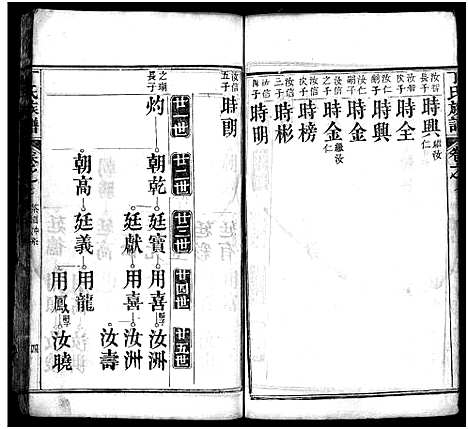 氏族譜
汝智
長子
時興
繼汝
仁
汝智
次子
時全
汝仁
嗣子
時興
汝信
長子
時金
繼汝
時金
汝信
次子
時榜
汝信
三子
時彬
汝信
四子
時明
汝信
五子
時朗
廿一世
廿二世
廿三世
廿四世
廿五世
之瑚
長子
灼
朝乾
廷寶
用喜
嗣子
汝洲
廷獻
用喜
汝洲
汝壽
朝高
廷義
用龍
用鳳
嗣子
汝曉
氏族譜
四